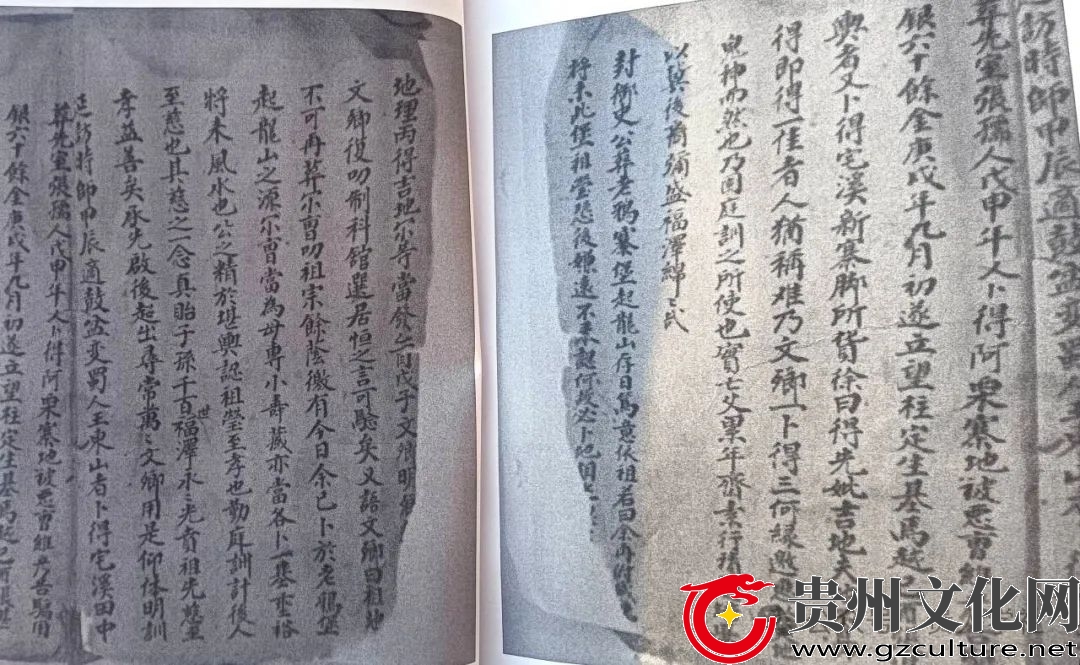 地理丙得吉地尔等當發戊子文卿明
文卿復叨制科館選居恒之言可驗矣又語文卿曰祖地
不可再葬尔曹叨祖宗餘蔭徼有今日余已卜於老鴉堡
起龍山之源尔曹當為母專卜壽藏亦當各卜一基垂裕
將來風水也公之精於堪輿認祖塋至孝也勤庭訓計後人
至慈也其慈之一念真貽子孫千百世福澤永之光賁祖先慈至
孝益善矣承先啟後超出尋常萬〻文卿用是仰体明訓
延訪時師甲辰適鼓盆變蜀人王東山者卜得宅溪田中
葬先室張孺人戊申年又卜得阿果寨地被惡首組
銀六十餘金庚戌年九月初遂立望柱定生基焉越
延訪時師甲辰適鼓盆變蜀人王東山
葬先室張孺人戊申年又卜得阿果寨地被惡首組
銀六十餘金庚戌年九月初遂立望柱定生基焉越
輿者又卜得宅溪新寨脚所貨徐曰得先妣吉地夫
得即得一佳者人猶稱难乃文卿一卜得三何緣邀
鬼神而然也乃因庭訓之所使也實亡父累年齋素行積
以冀後裔彌盛福澤綿〻弍
封御史公葬老鴉寨堡起龍山存日篤意伏祖君曰余再附
將來此堡祖塋恐後嫌遠不来認何必卜地
贵州文化网
www.gzculture.net